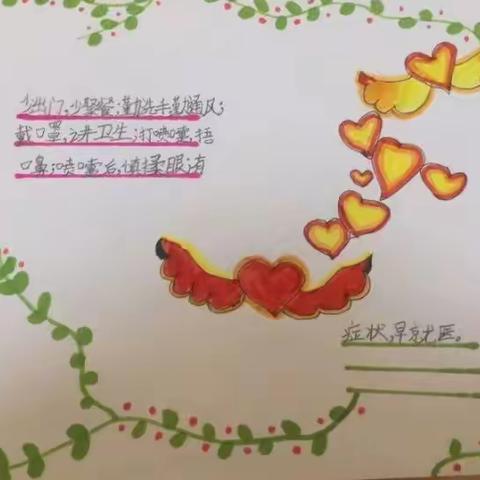 少出门,少聚餐;勤洗手勤通风;
戴口罩,讲卫生;打喷嚏,捂
口鼻;喷嚏后,慎揉眼;有
症状,早就医。